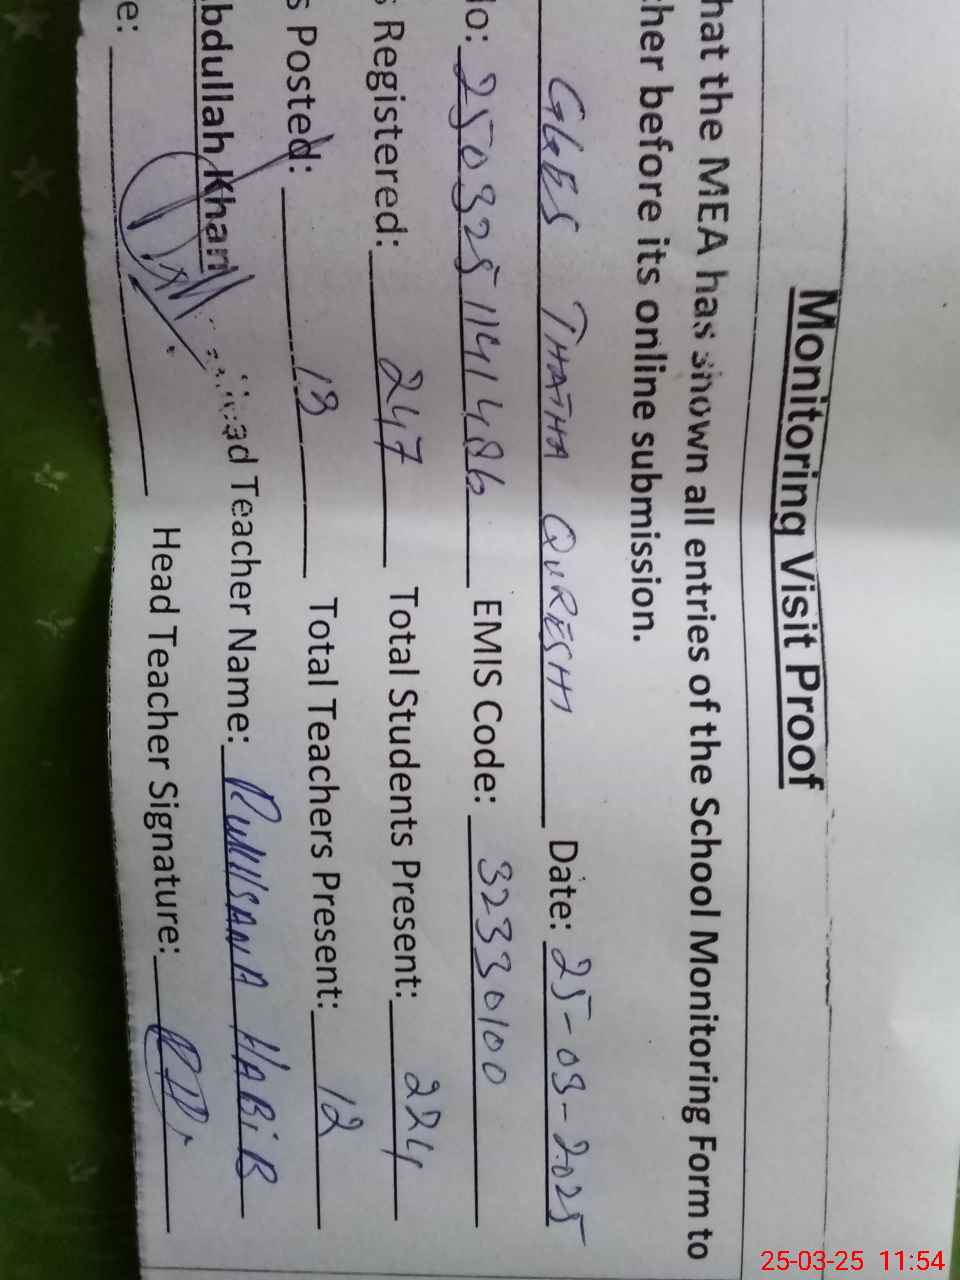 Monitoring Visit Proof
hat the MEA has shown all entries of the School Monitoring Form to
her before its online submission.
GGES THATHA QURESHI Date: 25-03-2025
lo: 2503251141486 EMIS Code: 32330100
s Registered: 247 Total Students Present: 224
s Posted: 13 Total Teachers Present: 12
bdullah Khan Head Teacher Name: RUKHSANA HABIB
e: Head Teacher Signature:
25-03-25 11:54